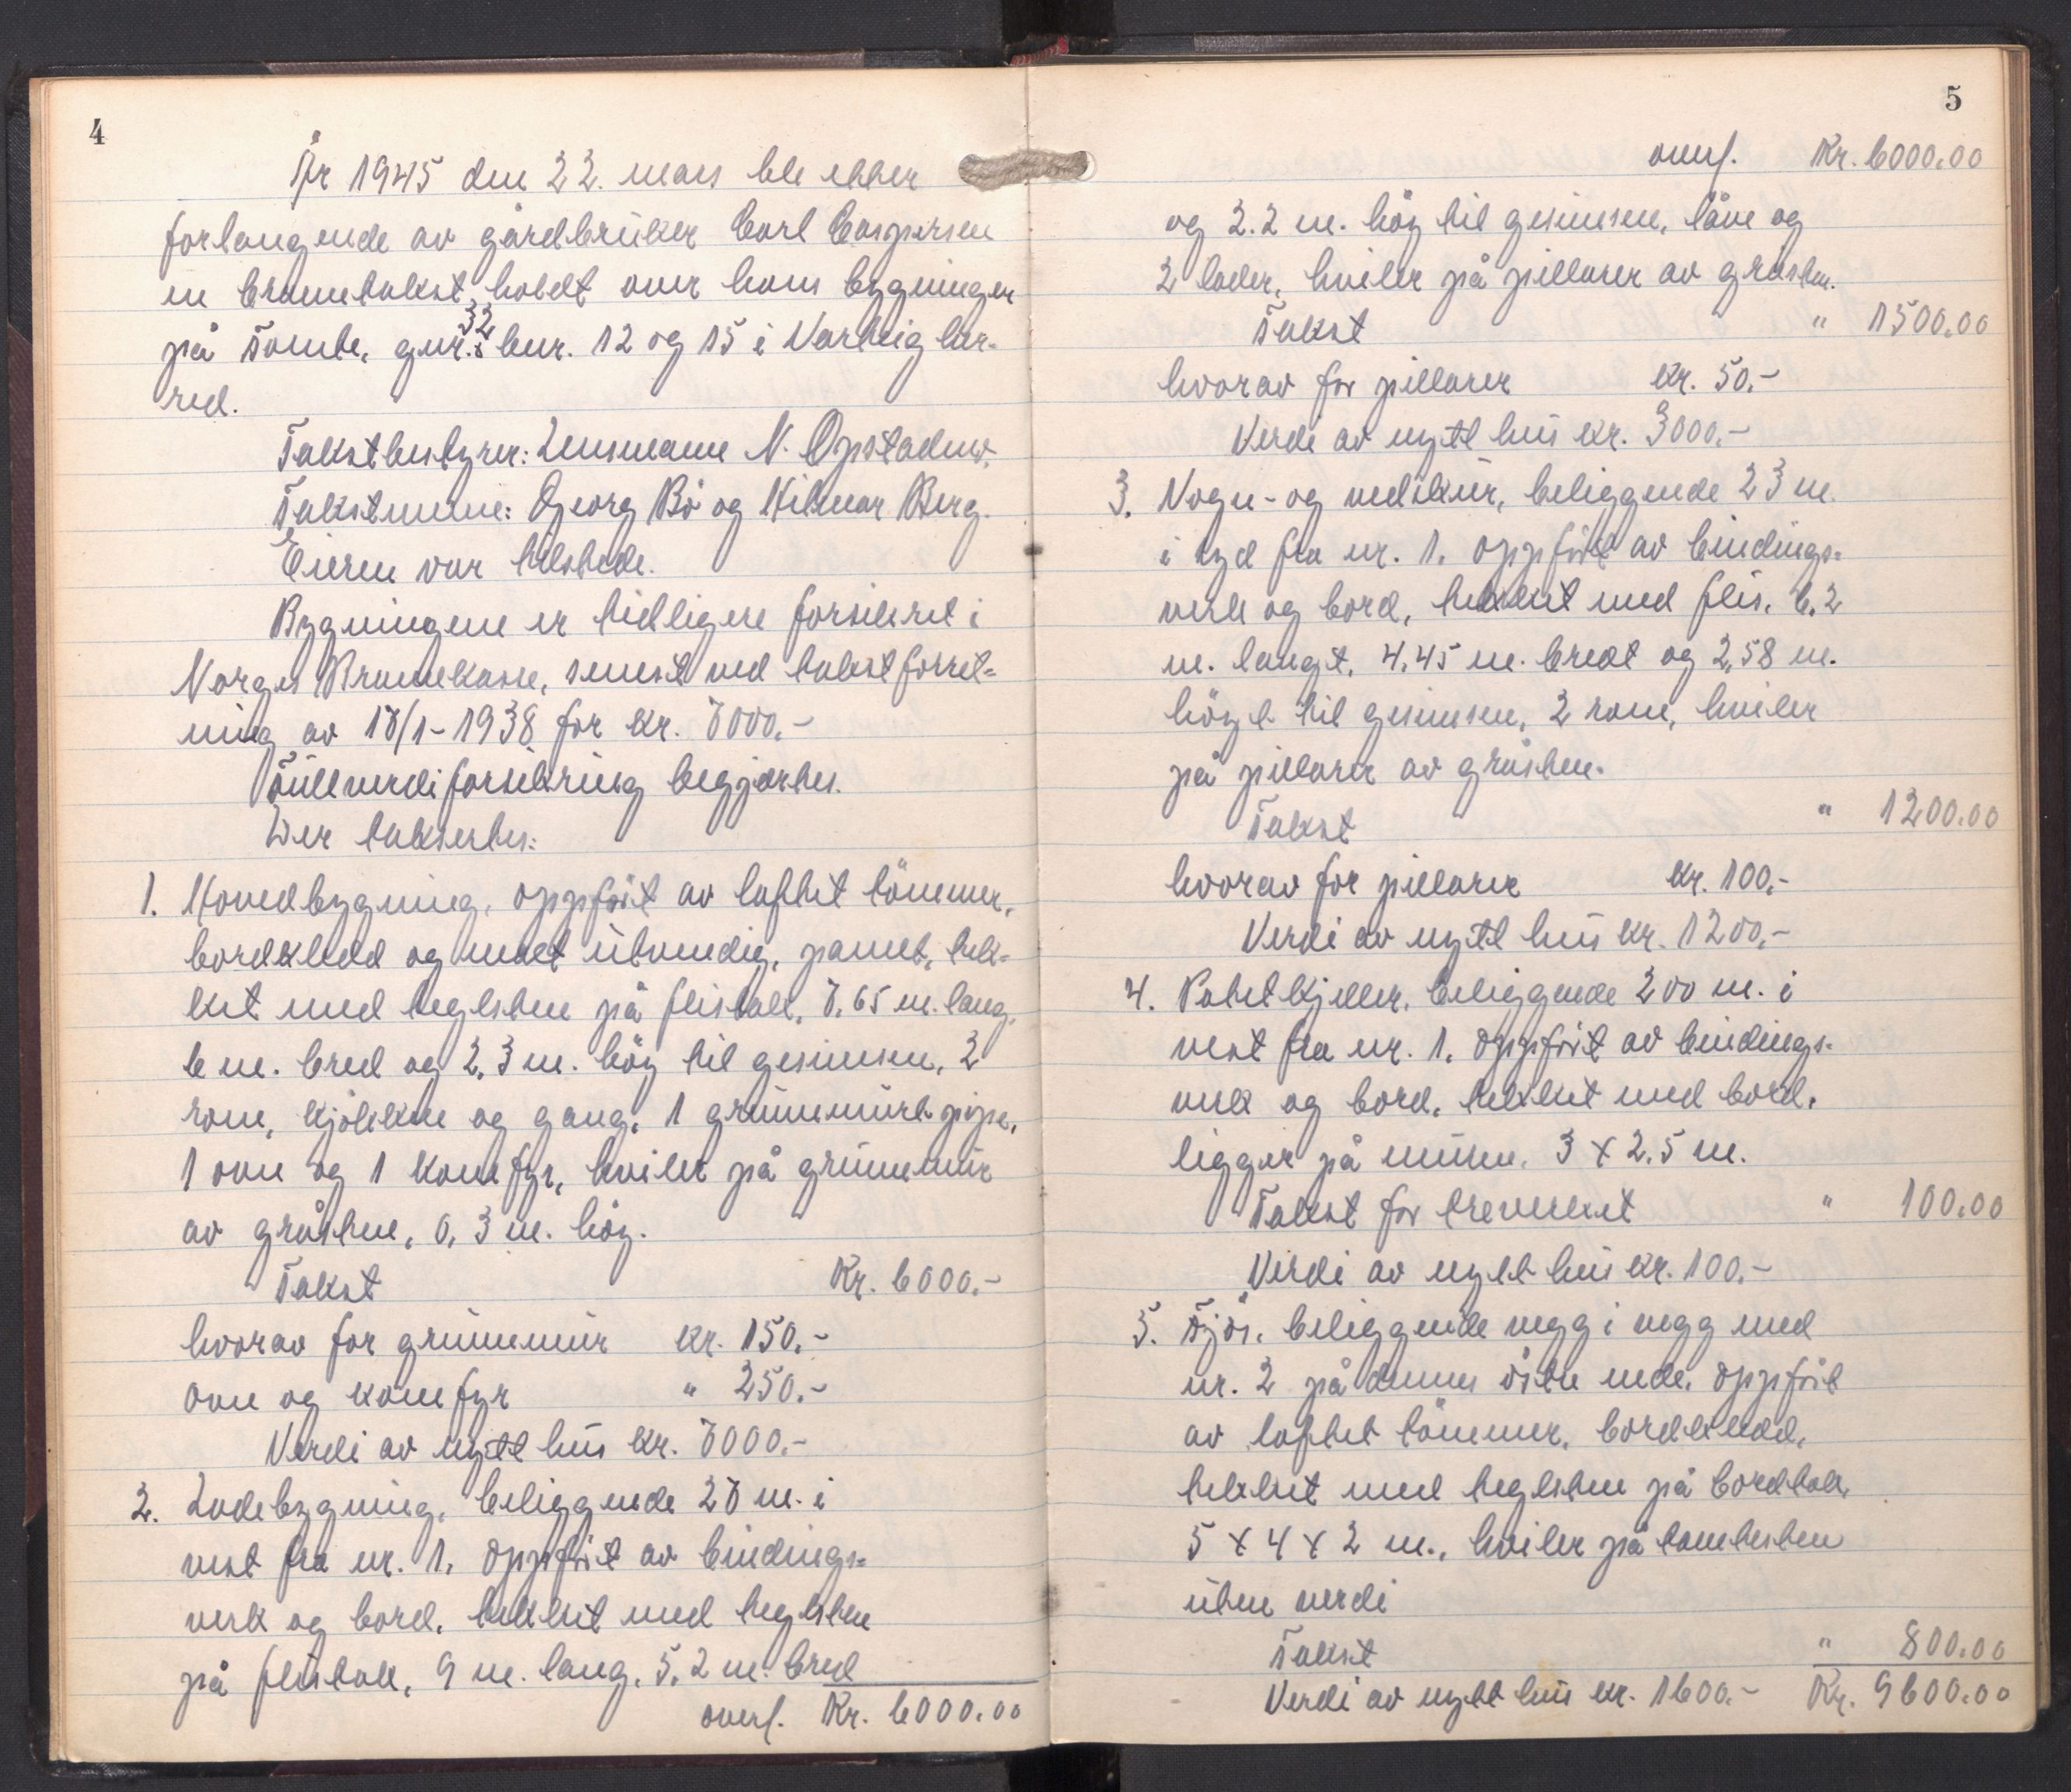 4
År 1945 den 22. mars ble etter
forlangende av gårdbruker Carl Caspersen
en branntakst holdt over hans bygninger
på Tomte, gnr. 32 bnr. 12 og 15 i Varteig her-
red.
Takstbestyrer: Lensmann N. Opstadnw.
Takstmenn: Georg Bö og Hilmar Berg.
Eieren var tilstede.
Bygningene er tidligere forsikret i
Norges Brannkasse, senest ved takstforret-
ning av 18/1-1938 for kr. 7000.-
Fullverdiforsikring begjærtes.
Der taksertes:
1. Hovedbygning, oppfört av laftet tömmer,
bordkledd og malt utvendig, panelt, tek-
ket med teglsten på flistak, 7.65 m. lang,
6 m. bred og 2,3 m. höy til gesimsen, 2
rom, kjökken og gang, 1 grunnmurt pipe,
1 ovn og 1 komfyr, hviler på grunnmur
av gråsten, 0,3 m. höy.
Takst Kr. 6000.-
hvorav for grunnmur kr. 150.-
ovn og komfyr " 250.-
Verdi av nytt hus kr. 7000.-
2. Ladebygning, beliggende 27 m. i
vest fra nr. 1. oppfört av bindings-
verk og bord, tekket med teglsten
på flistak, 9 m. lang, 5,2 m. bred
overf. Kr. 6000.00
5
overf. Kr. 6000.00
og 2.2 m. höy til gesimsen, låve og
2 lader, hviler på pillarer av gråsten.
Takst " 1500.00
hvorav for pillarer kr. 50.-
Verdi av nytt hus kr. 3000.-
3. Vogn- og vedskur, beliggende 23 m.
i syd fra nr. 1. oppfört av bindings-
verk og bord, tekket med flis, 6.2
m. langt, 4.45 m. bredt og 2,58 m.
höyt til gesimsen, 2 rom, hviler
på pillarer av gråsten.
Takst " 1200.00
hvorav for pillarer kr. 100.-
Verdi av nytt hus kr. 1200.-
4. Potetkjeller, beliggende 200 m. i
vest fra nr. 1. oppfört av bindings-
verk og bord, tekket med bord,
ligger på muren, 3 x 2.5 m.
Takst for treverket " 100.00
Verdi av nytt hus kr. 100.-
5. Fjös, beliggende vegg i vegg med
nr. 2 på dennes östre ende, oppfört
av laftet tömmer, bordkledd,
tekket med teglsten på bordtak,
5 x 4 x 2 m., hviler på tomtesten
uten verdi
Takst " 800.00
Verdi av nytt hus kr. 1600.- Kr. 9600.00